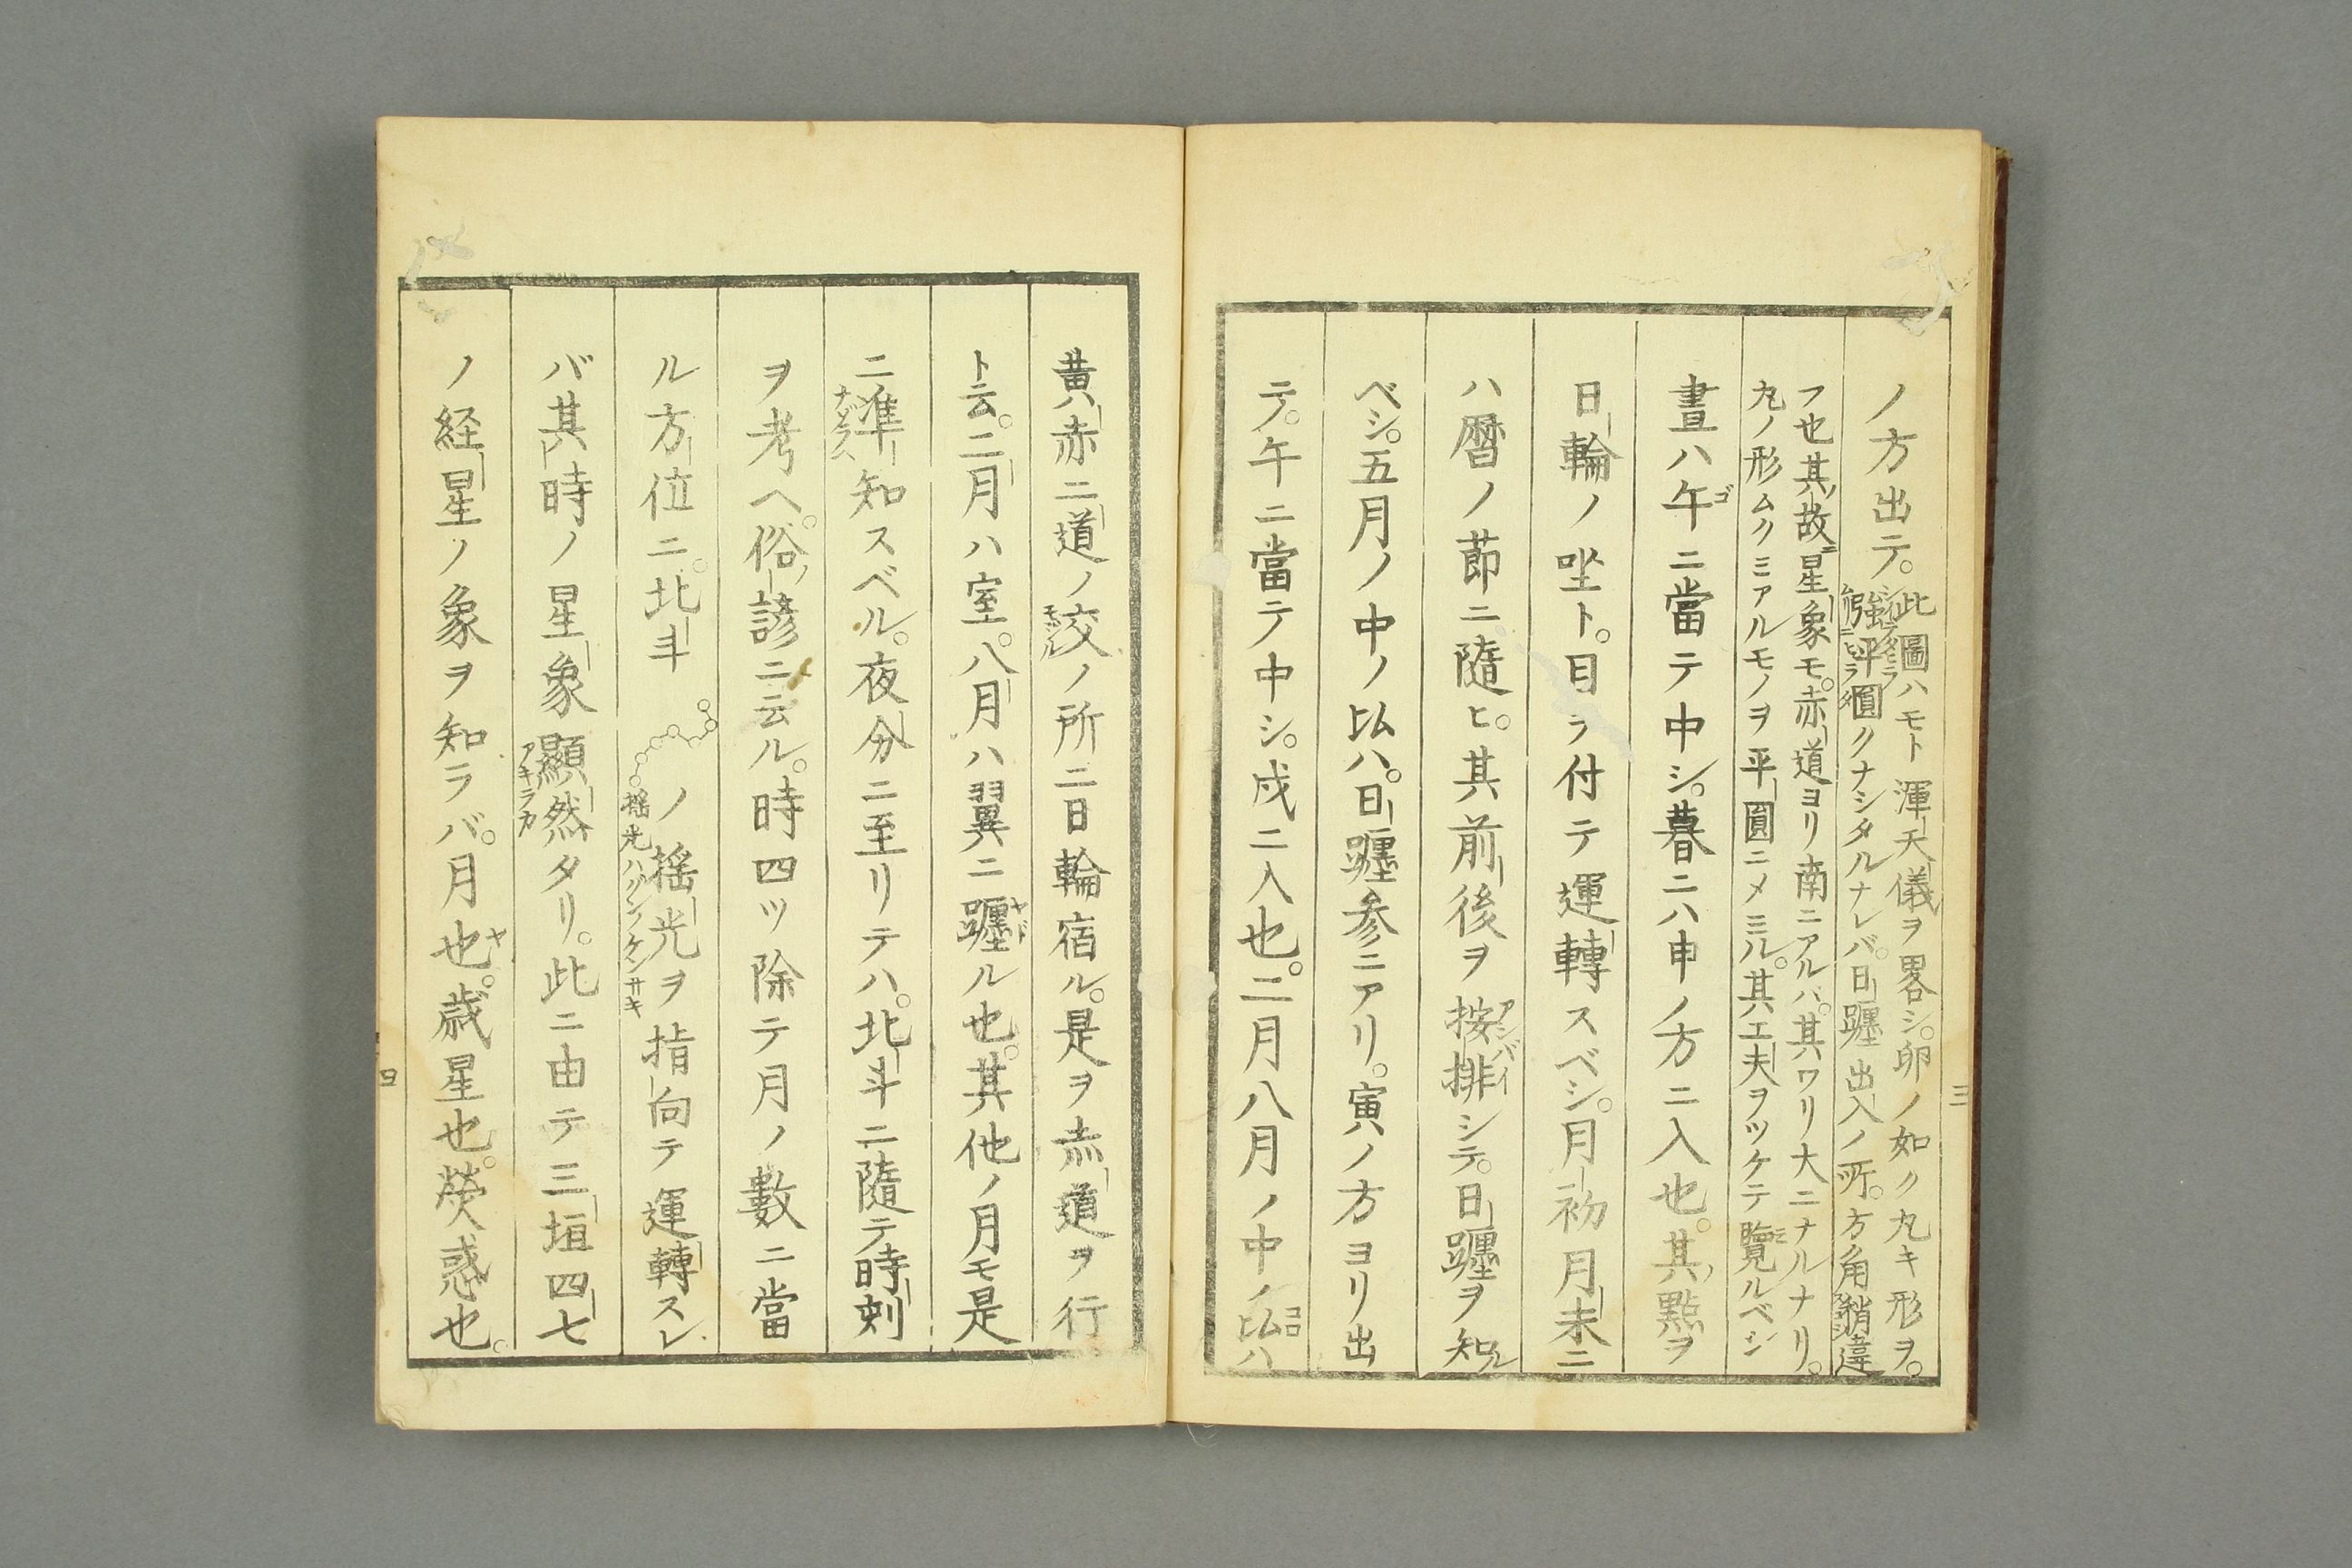 ノ方出テ。此圖ハモト渾天儀ヲ畧シ。卵ノ如ク丸キ形ヲ。
強平圓クナシタルナレバ。日躔出入ノ所。方角稍違
フ也其故ニ星象モ。赤道ヨリ南ニアルハ。其ワリ大ニナルナリ。
丸ノ形ムクミアルモノヲ平圓ニメミル。其工夫ヲツケテ覽ルベシ
晝ハ午ニ當テ中シ。暮ニハ申ノ方ニ入也。其點ヲ
ゴ
日輪ノ坐ト。目ラ付テ運轉スベシ。月初月末ニ
ハ暦ノ節ニ隨ヒ。其前後ヲ按排シテ。日躔ヲ知ル
アンバイ
ベシ。五月ノ中ノ比ハ。日躔参ニアリ。寅ノ方ヨリ出
テ。午ニ當テ中シ。戍ニ入也。二月八月ノ中ノ比ハ
コロ
三
黄赤二道ノ絞ノ所ニ日輪宿ル。是ヲ赤道ヲ行
モヂル
ト云。二月ハ室。八月ハ翼ニ躔ル也。其他ノ月モ是
ヤド
ニ準知スベル。夜分ニ至リテハ。北斗ニ隨テ時刻
ナゾラヘ
ヲ考ヘ。俗ノ諺ニ云ル。時四ツ除テ月ノ數ニ當
ル方位ニ。北斗ノ揺光ヲ指向テ運轉スレ
揺光ハハグンノケンサキ
バ其時ノ星象顯然タリ。此ニ由テ三垣四七
アキラカ
ノ経星ノ象ヲ知ラバ。月也。歳星也。熒惑也。
ヤ
四